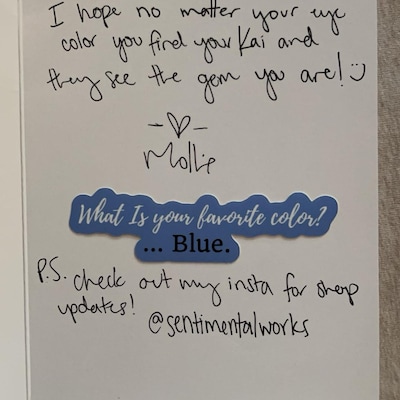 I hope no matter your eye
color you find your Kai and
they see the gem you are! :)
-♡-
Mollie
What Is your favorite color?
... Blue.
P.S. check out my insta for shop
updates!
@sentimentalworks